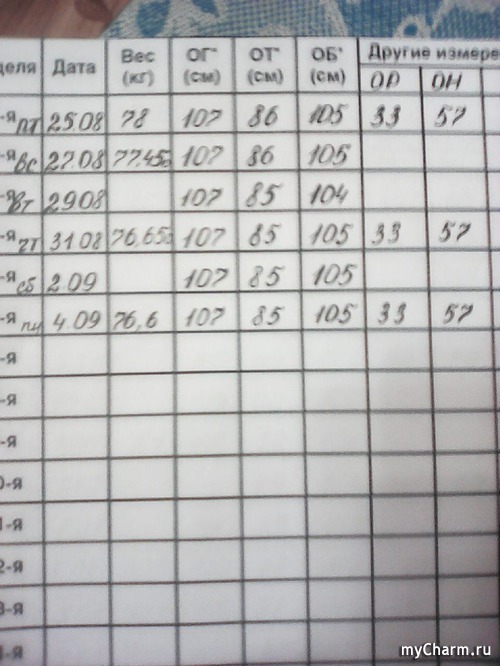 деля Дата Вес (кг) ОГ* (см) ОТ* (см) ОБ* (см) Другие измере
ОР ОН
-я пт 25.08 78 107 86 105 33 57
-я вс 27.08 77.450 107 86 105
-я вт 29.08 107 85 104
-я чт 31.08 76,650 107 85 105 33 57
-я сб 2.09 107 85 105
-я пн 4.09 76,6 107 85 105 33 57
-я
-я
-я
0-я
1-я
2-я
3-я
-я
myCharm.ru